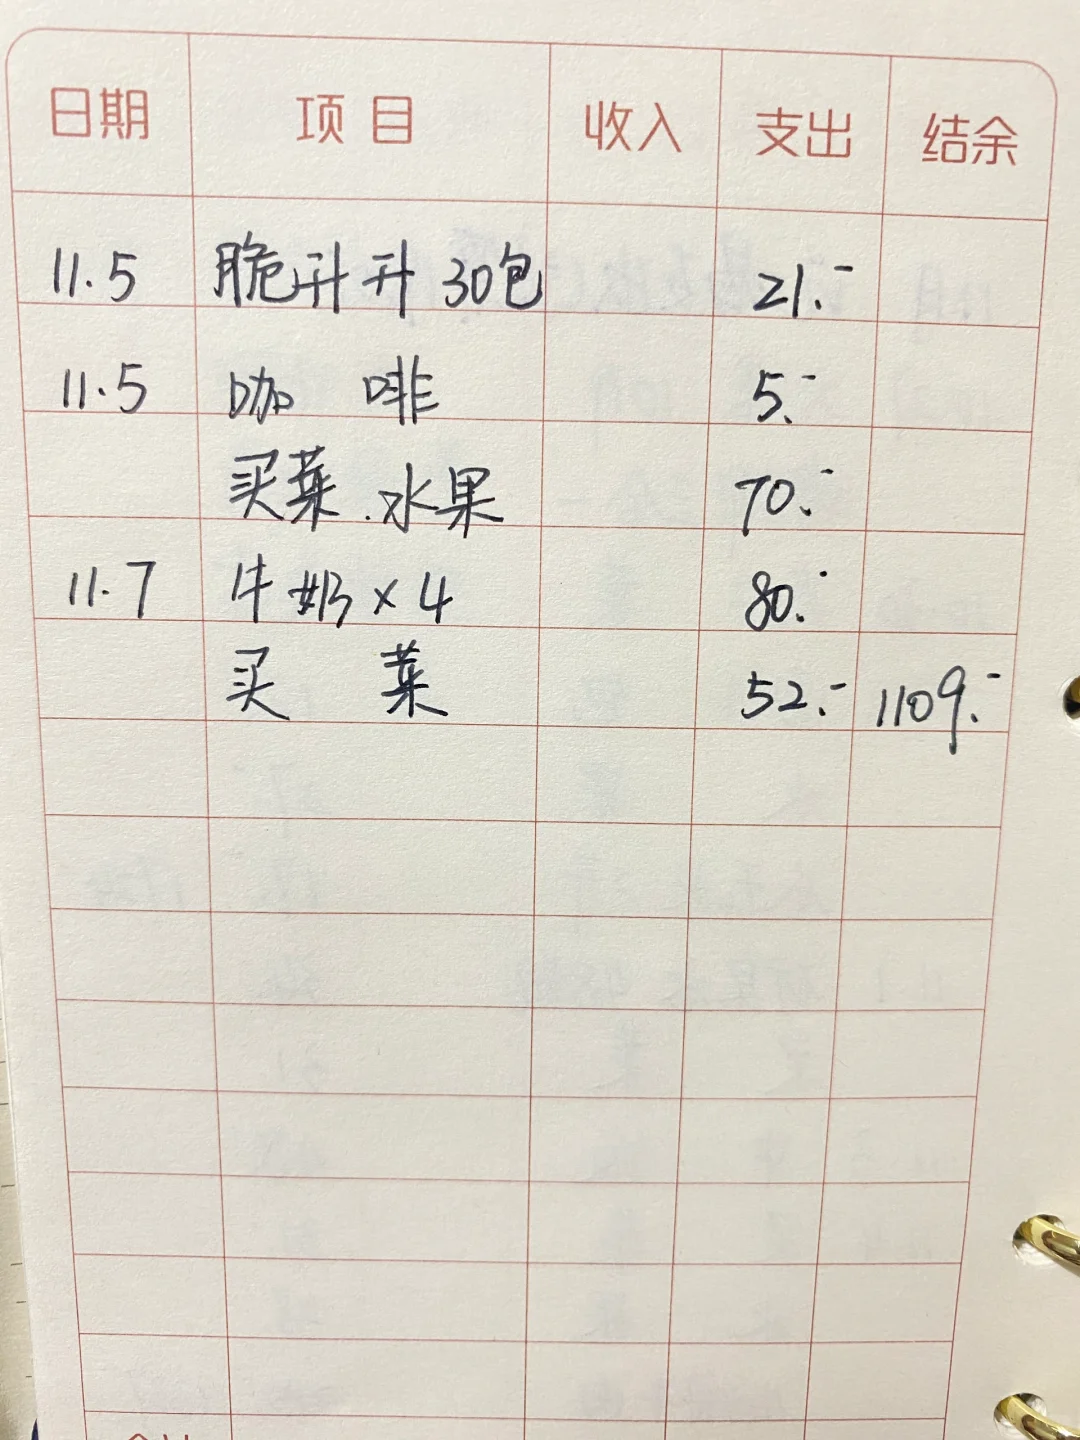 日期 项目 收入 支出 结余
11.5 脆升升 30包 21.-
11.5 咖啡 5.-
买菜.水果 70.-
11.7 牛奶×4 80.-
买菜 52.- 1109.-